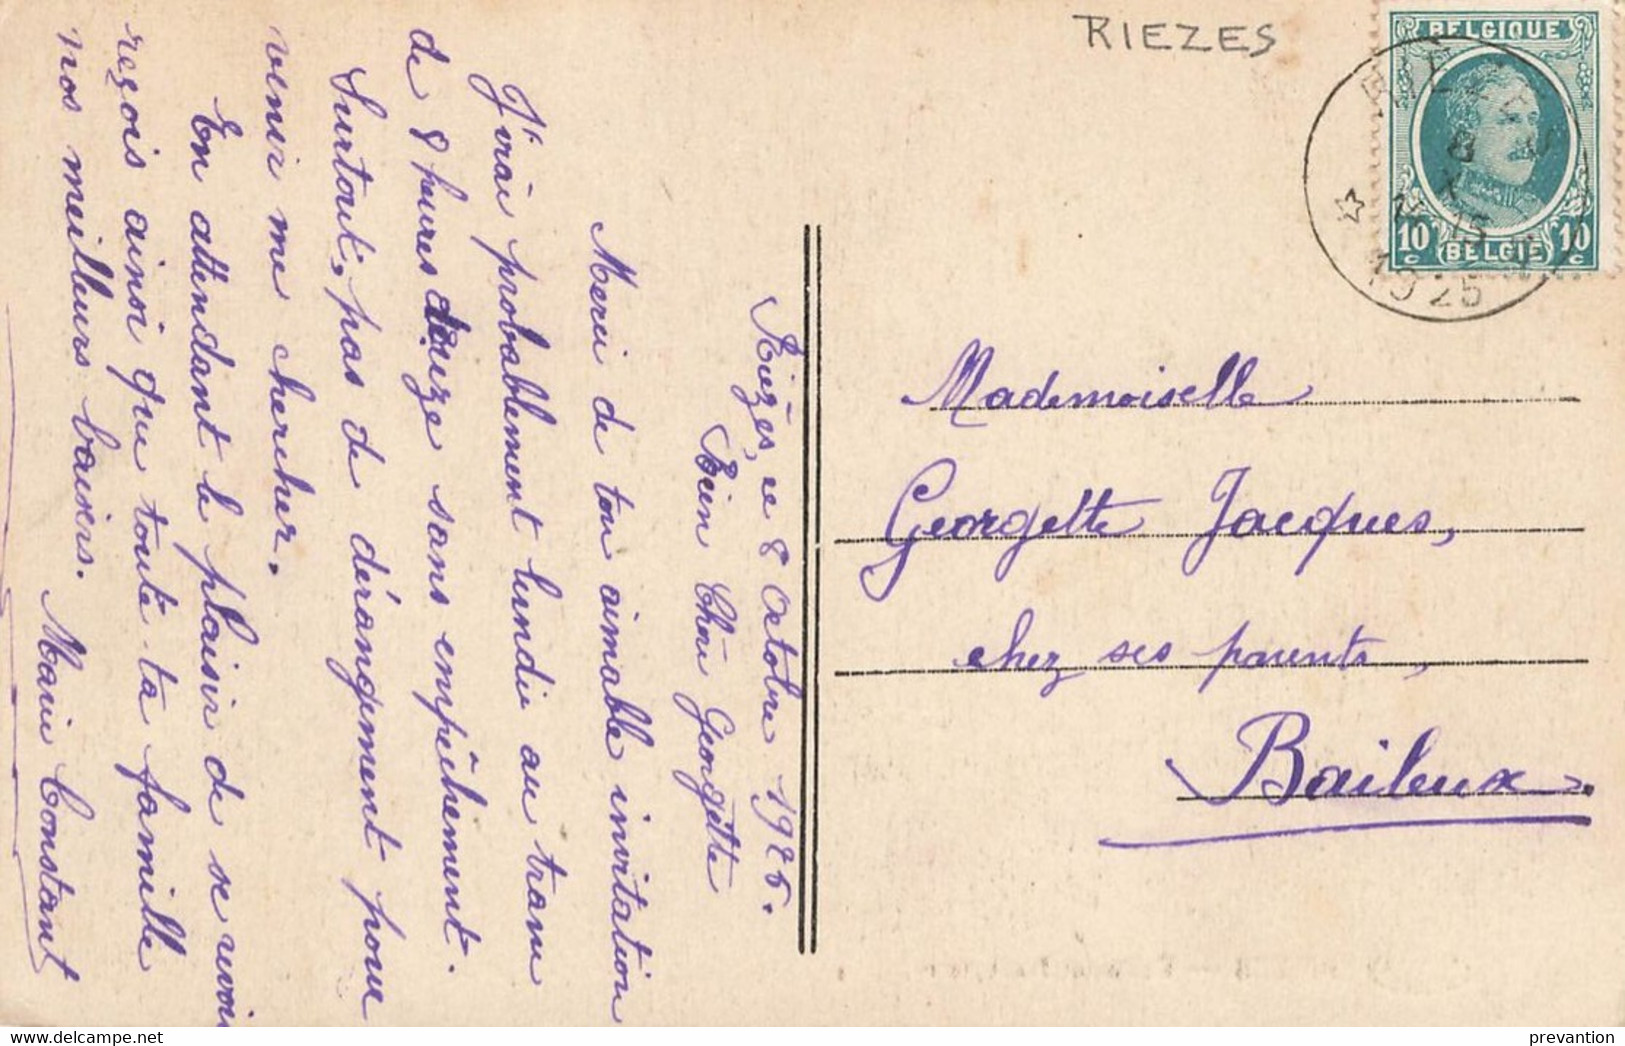 RIEZES
BELGIQUE
10 c
10 c
BELGIË
RIEZES
8
X
15
1925
Riezès, ce 8 octobre 1925.
Bien Chère Georgette
Merci de ton aimable invitation
J'irai probablement lundi au tram
de 8 heures douze sans empêchement.
Surtout, pas de dérangement pour
venir me chercher.
En attendant le plaisir de se revoir
reçois ainsi que toute ta famille
nos meilleurs baisers.
Marie Constant
Mademoiselle
Georgette Jacques,
chez ses parents,
Baileux.
prevantion